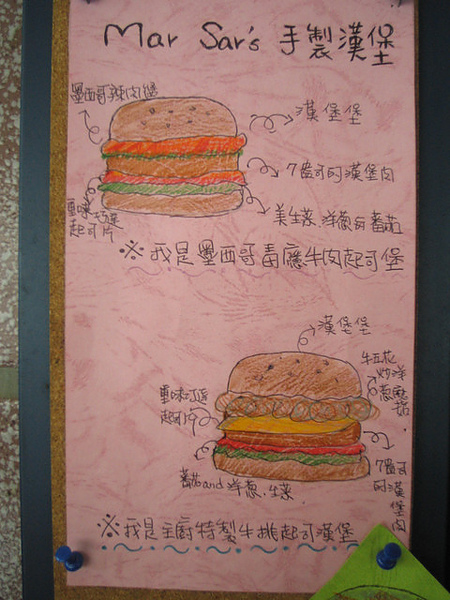 Mar Sar's 手製漢堡
墨西哥辣肉醬
漢堡堡
7盎司的漢堡肉
重味巧達
起司片
美生菜、洋蔥與蕃茄
※我是墨西哥毒應牛肉起司堡
漢堡堡
牛五花
炒洋
蔥蘑
菇
重味巧達
起司片
7盎司
的漢
堡肉
蕃茄and洋蔥、生菜
※我是主廚特製牛挑起司漢堡